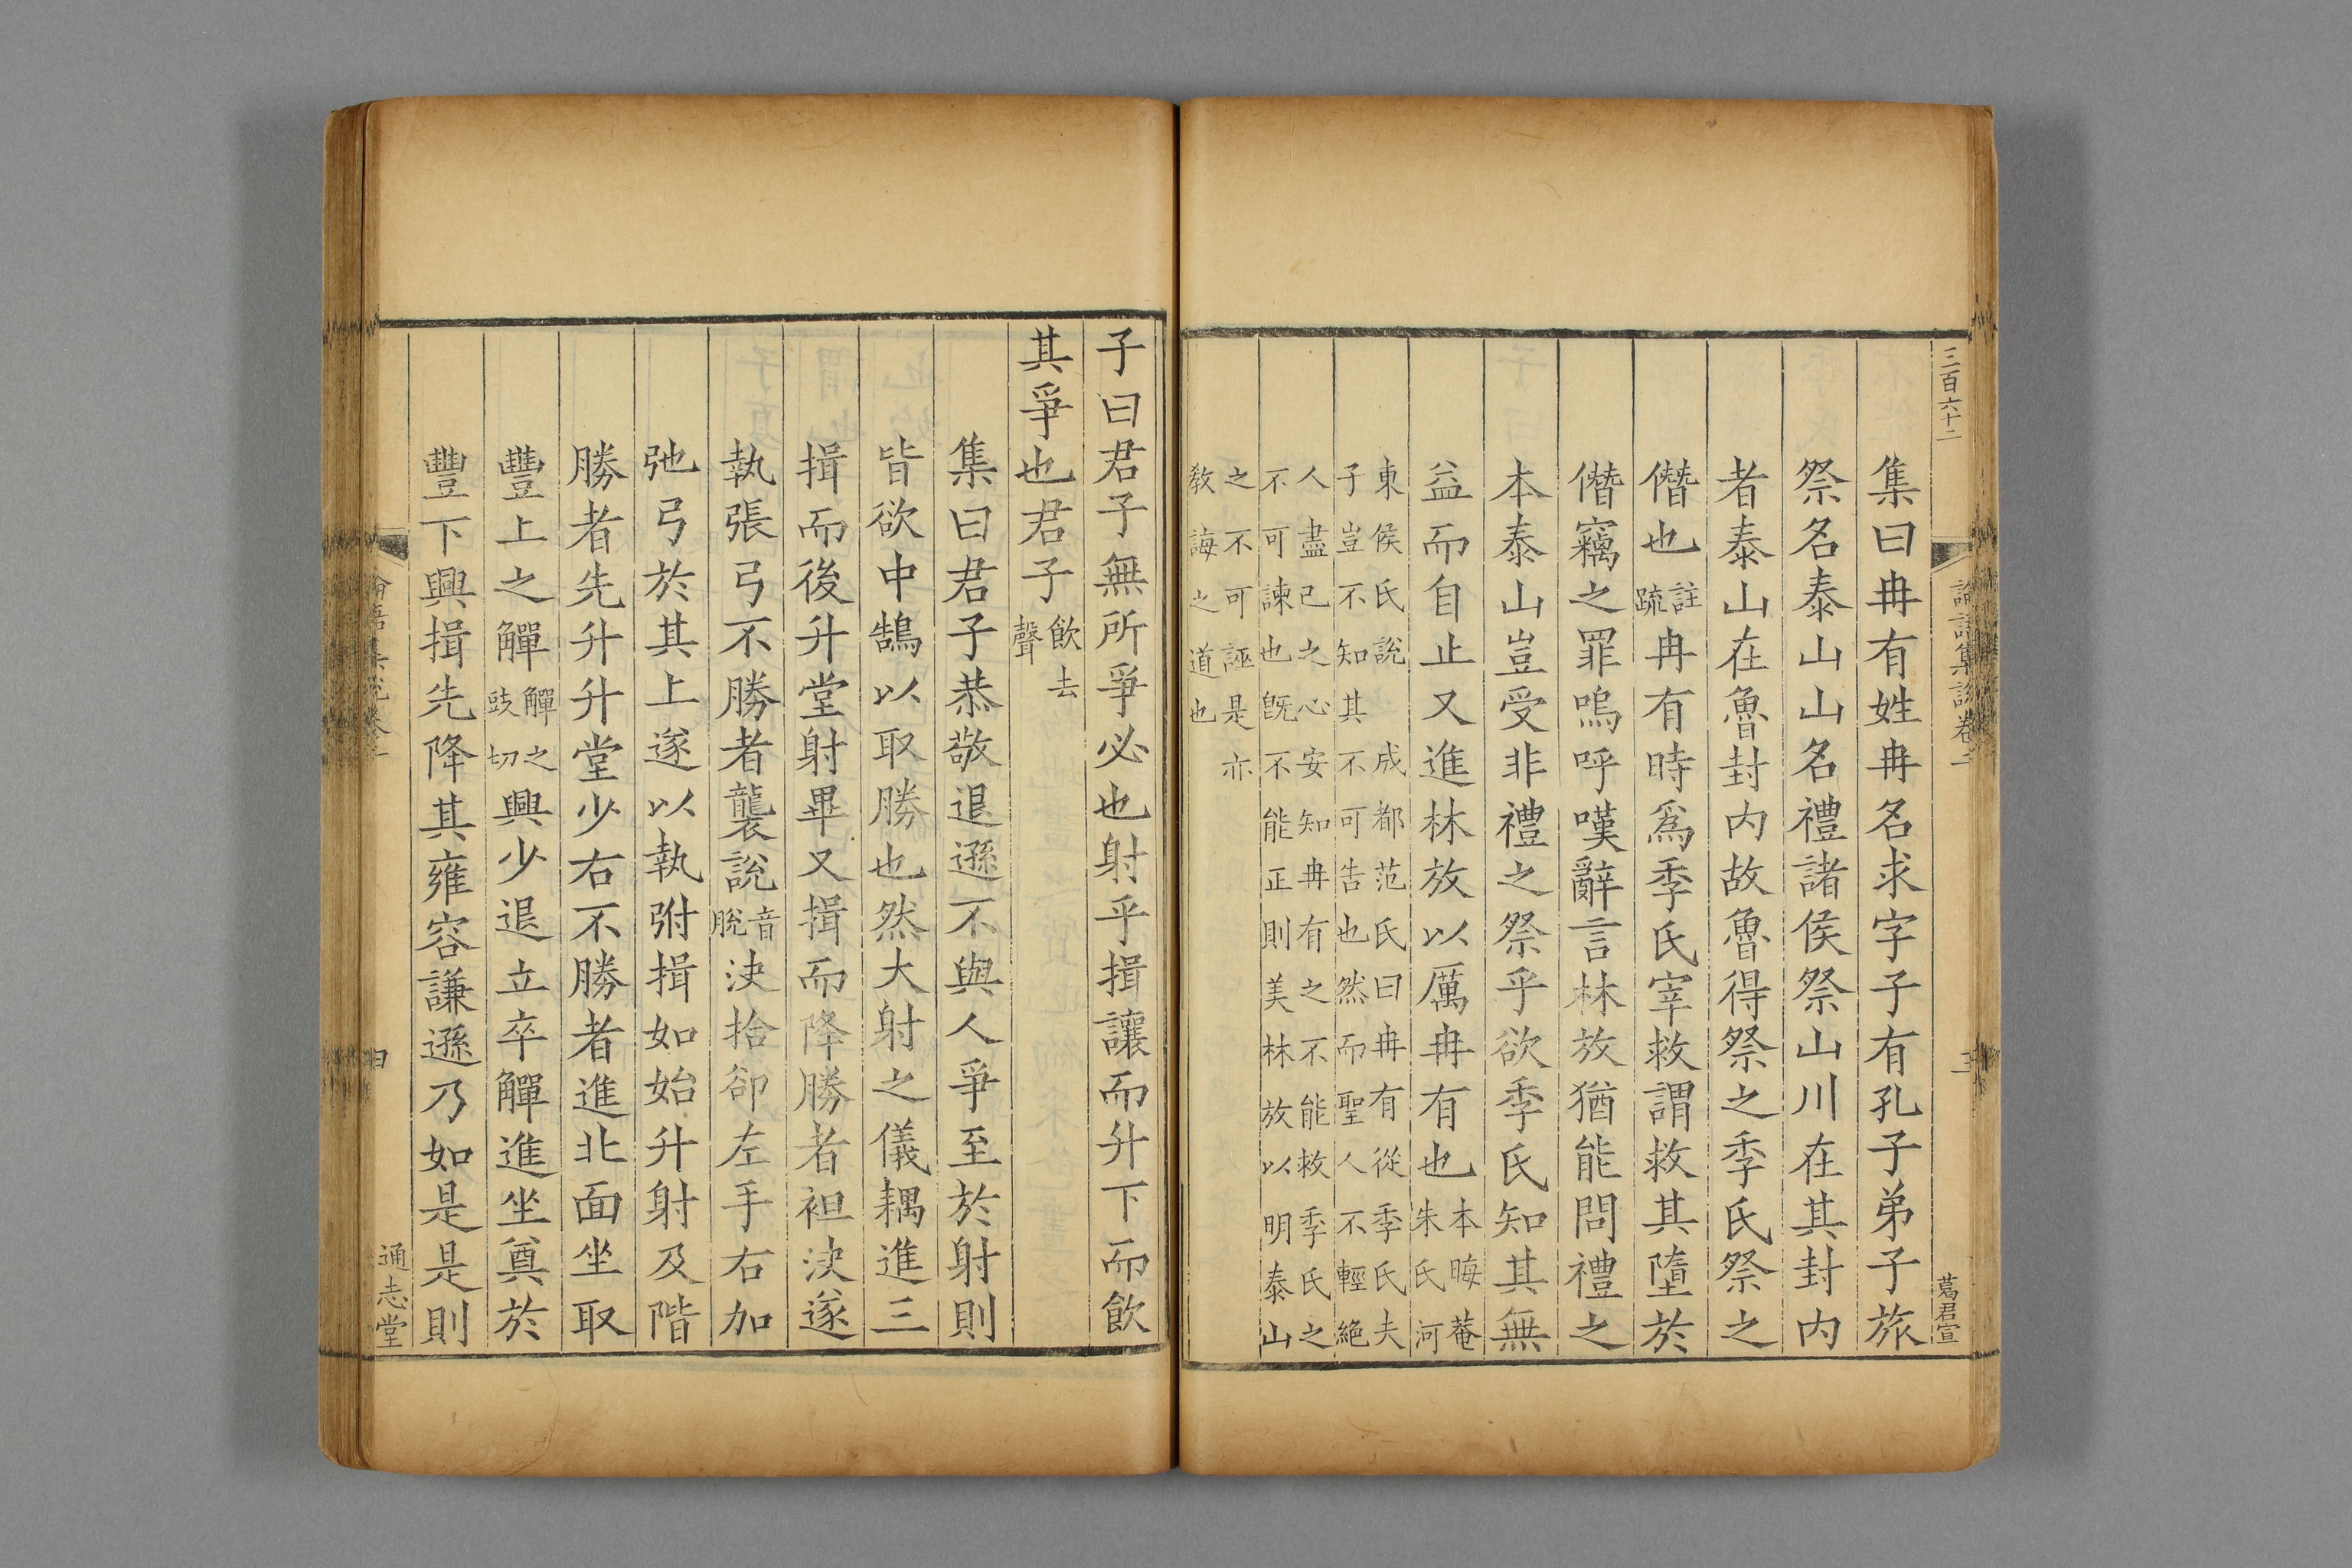 三百六十二
論語集說卷二
三
葛君宣
集曰冉有姓冉名求字子有孔子弟子旅
祭名泰山山名禮諸侯祭山川在其封內
者泰山在魯封內故魯得祭之季氏祭之
僭也註疏冉有時爲季氏宰救謂救其墮於
僭竊之罪嗚呼嘆辭言林放猶能問禮之
本泰山豈受非禮之祭乎欲季氏知其無
益而自止又進林放以厲冉有也本晦菴朱氏河
東侯氏說 成都范氏曰冉有從季氏夫
子豈不知其不可告也然而聖人不輕絕
人盡己之心安知冉有之不能救季氏之
不可諫也旣不能正則美林放以明泰山
之不可誣是亦
敎誨之道也
子曰君子無所爭必也射乎揖讓而升下而飮
其爭也君子飮去聲
集曰君子恭敬退遜不與人爭至於射則
皆欲中鵠以取勝也然大射之儀耦進三
揖而後升堂射畢又揖而降勝者袒決遂
執張弓不勝者襲說音脫決拾卻左手右加
弛弓於其上遂以執弣揖如始升射及階
勝者先升升堂少右不勝者進北面坐取
豐上之觶觶之豉切興少退立卒觶進坐奠於
豐下興揖先降其雍容謙遜乃如是是則
通志堂